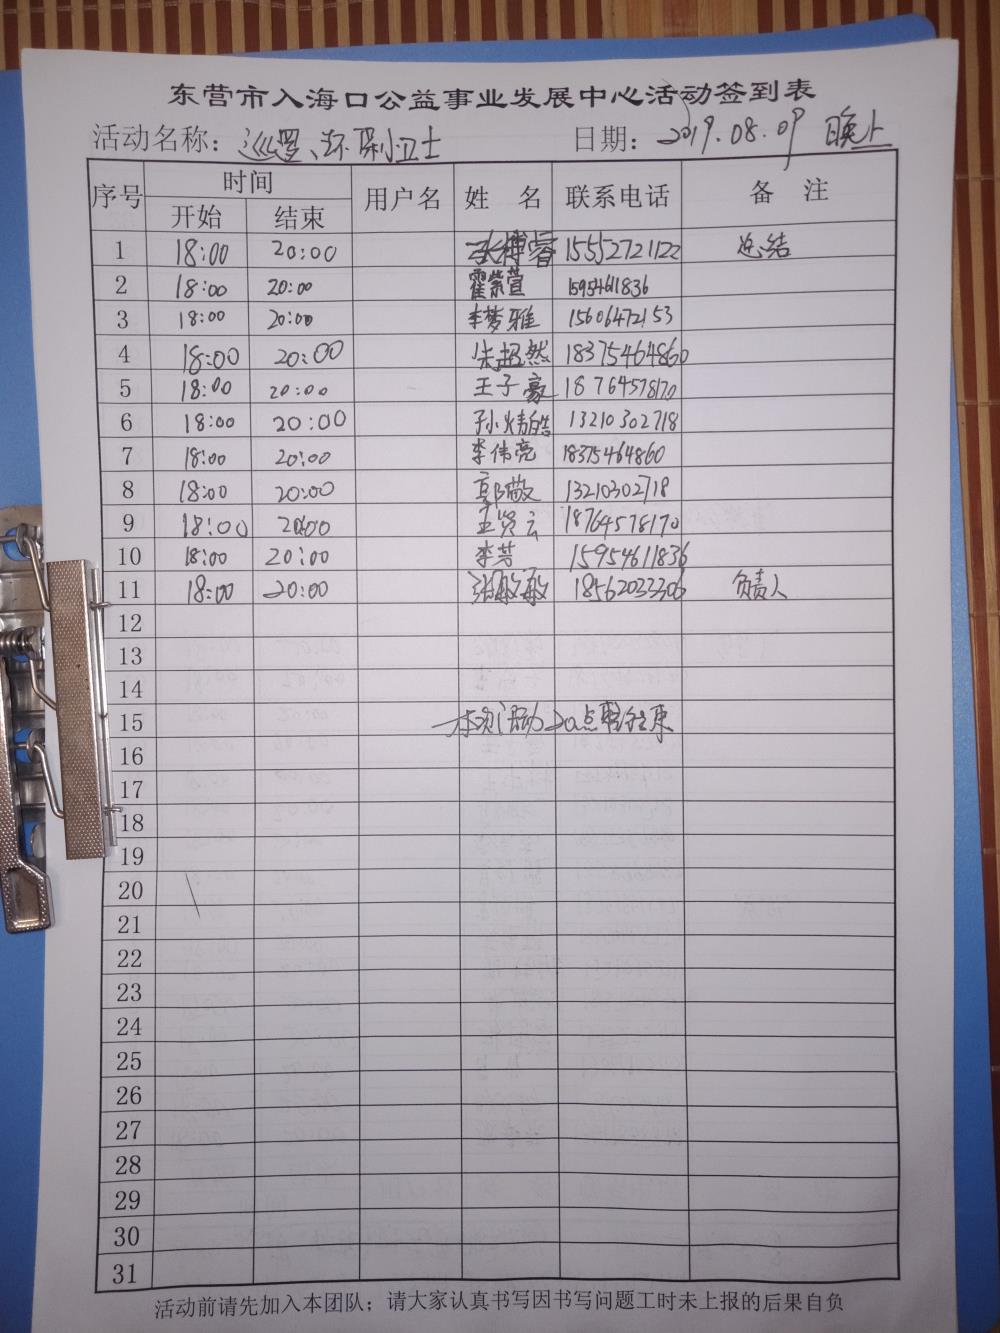 东营市入海口公益事业发展中心活动签到表
活动名称：巡逻、环保小卫士 日期：2019.08.09 晚上
序号 时间 用户名 姓 名 联系电话 备 注
开始 结束
1 18:00 20:00 张博睿 15552721122 总结
2 18:00 20:00 霍紫萱 15954611836
3 18:00 20:00 李梦雅 15606472153
4 18:00 20:00 朱超然 18375464860
5 18:00 20:00 王子豪 18764578170
6 18:00 20:00 孙炜皓 13210302718
7 18:00 20:00 李伟亮 18375464860
8 18:00 20:00 郭敬 13210302718
9 18:00 20:00 王贤云 18764578170
10 18:00 20:00 李芳 15954611836
11 18:00 20:00 张敏敏 18562033306 负责人
12
13
14
15 本次活动20点整结束
16
17
18
19
20
21
22
23
24
25
26
27
28
29
30
31
活动前请先加入本团队；请大家认真书写因书写问题工时未上报的后果自负